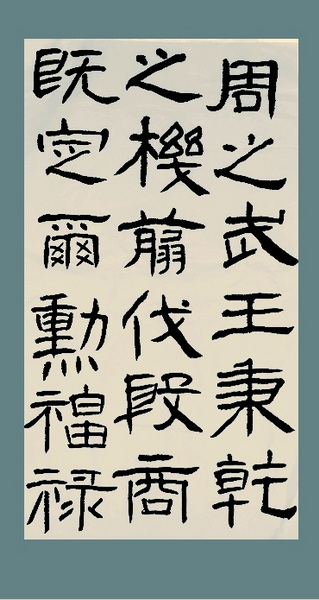 周之武王秉乾
之機翦伐殷商
既定爾勳福禄